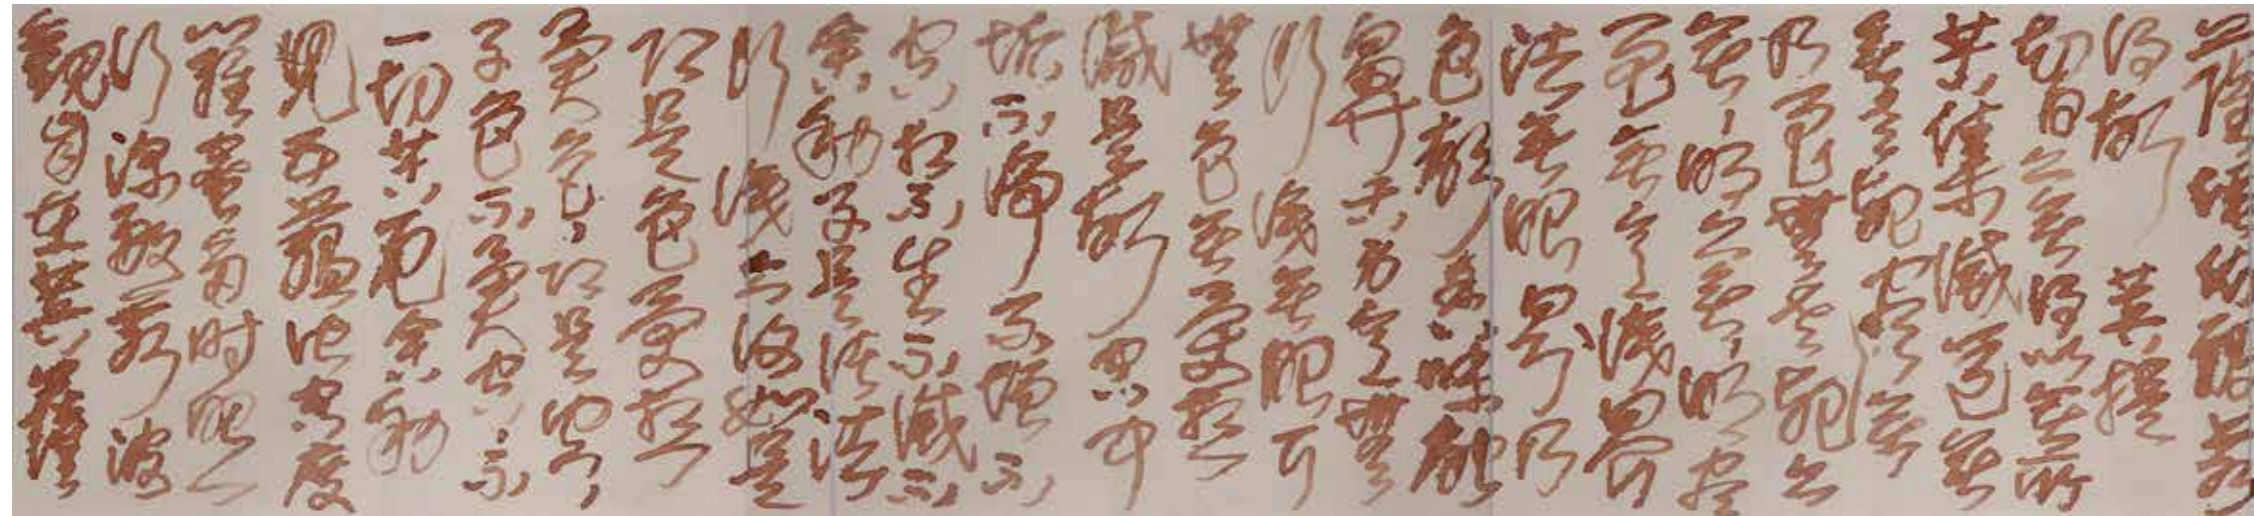 觀自在菩薩
行深般若波
羅蜜多時照
見五蘊皆空度
一切苦厄舍利
子色不異空〻不
異色〻即是空〻
即是色受想
行識亦復如是
舍利子是諸法
空相不生不滅不
垢不淨不增不
減是故空中
無色無受想
行識無眼耳
鼻舌身意無
色聲香味觸
法無眼界乃
至無意識界
無〻明亦無〻明盡
乃至無老死亦
無老死盡無
苦集滅道無
智亦無得以無所
得故菩提
薩埵依般若